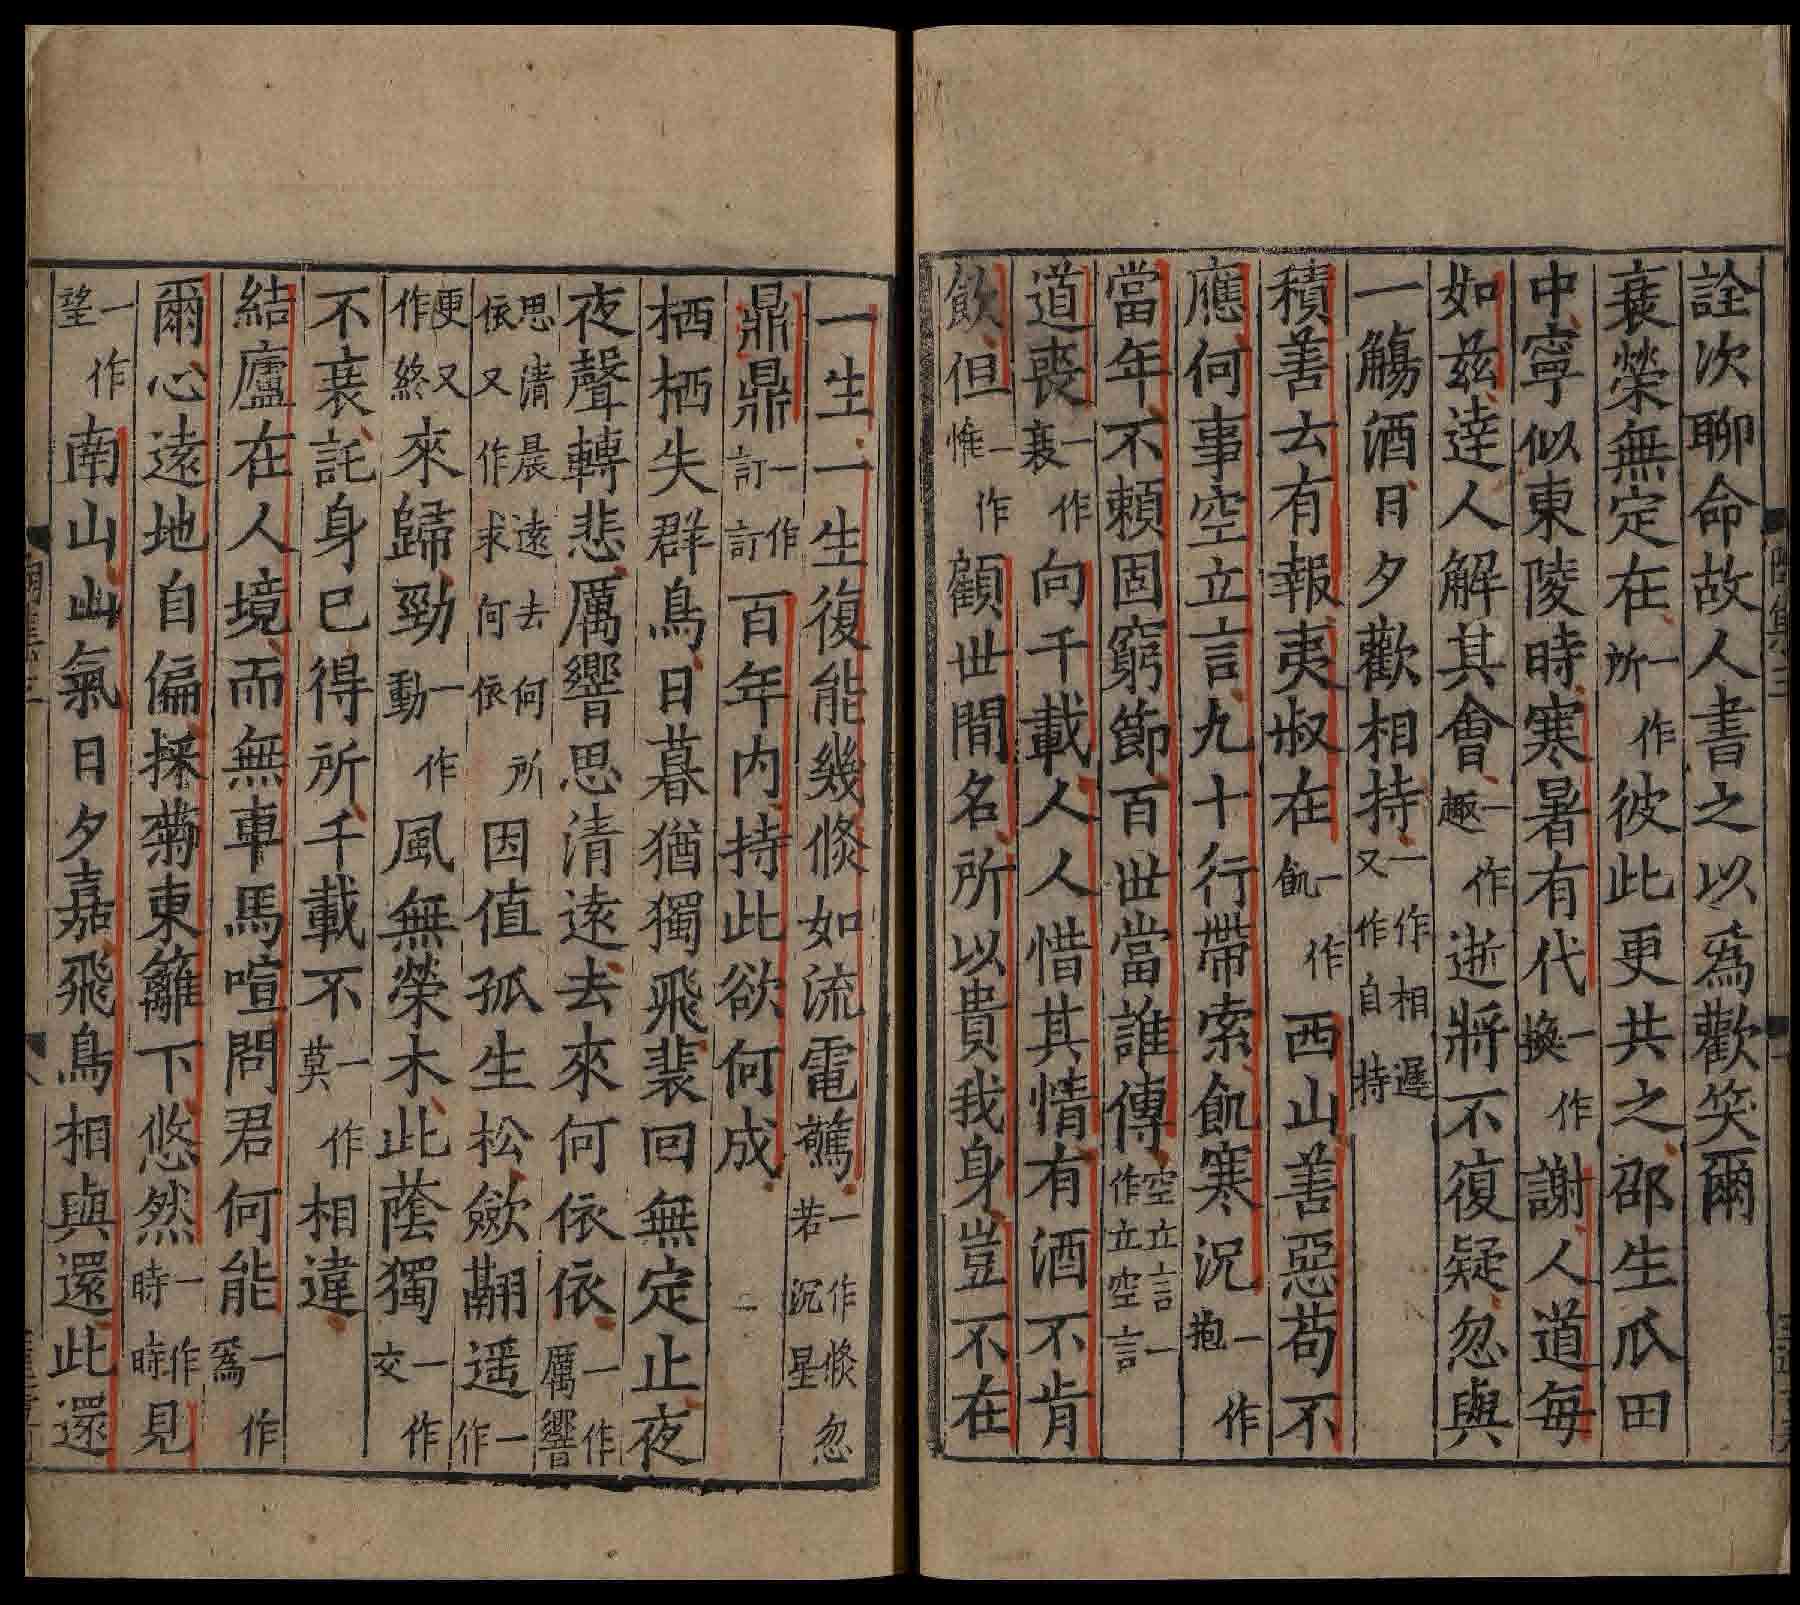 詮次聊命故人書之以爲歡笑爾
衰榮無定在一作所彼此更共之邵生瓜田
中寧似東陵時寒暑有代一作換謝人道每
如兹達人解其會一作趣逝將不復疑忽與
一觴酒日夕歡相持一作相遲又作自持
積善云有報夷叔在一作飢西山善惡苟不
應何事空立言九十行帶索飢寒況一作抱
當年不賴固窮節百世當誰傳空立言一作立空言
道喪一作衰向千載人人惜其情有酒不肯
飲但一作惟顧世間名所以貴我身豈不在
一生一生復能幾倐如流電驚一作倐忽若沉星
鼎鼎一作訂訂百年内持此欲何成
栖栖失群鳥日暮猶獨飛裴回無定止夜
夜聲轉悲厲響思清遠去來何依依一作厲響
思清晨遠去何所依又作求何依因值孤生松歛翮遥一作
更又作終來歸勁一作動風無榮木此蔭獨一作交
不衰託身已得所千載不一作莫相違
結廬在人境而無車馬喧問君何能一作爲
爾心遠地自偏採菊東籬下悠然一作時時見
一作望南山山氣日夕嘉飛鳥相與還此還